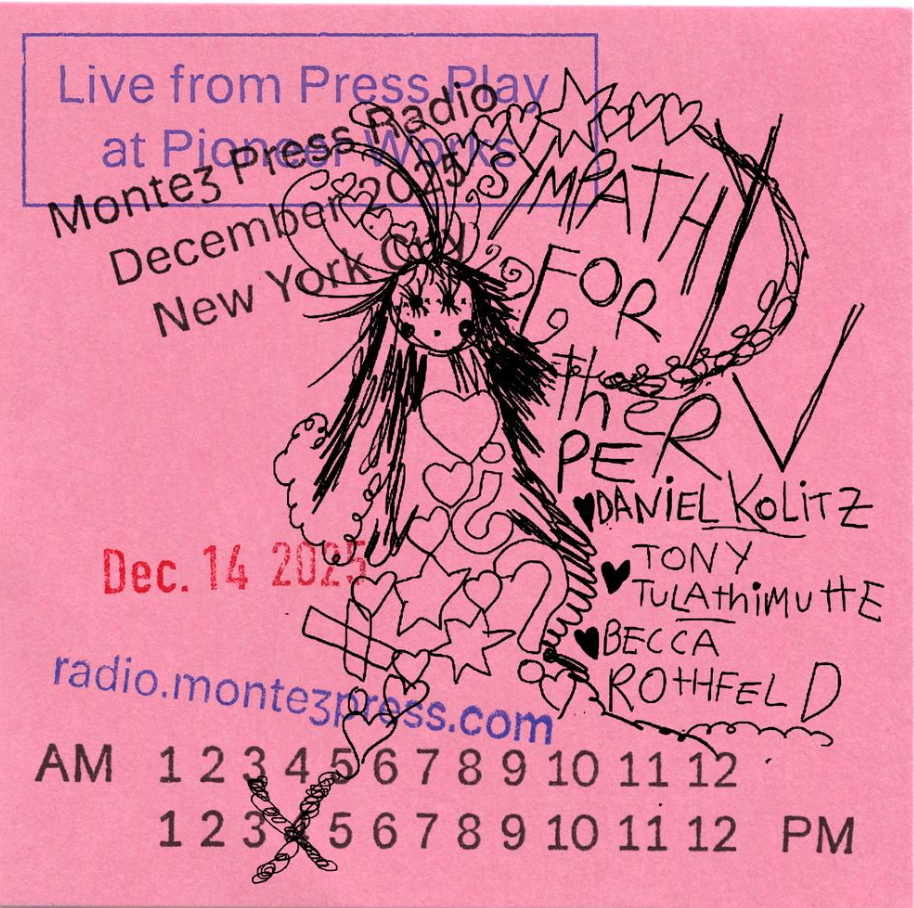 Live from Press Play
at Pioneer Works
Monteʒ Press Radio
December 2025
New York City
SYMPATHY
FOR
theR
PERV
DANIEL KOLITZ
TONY
TULAthiMUttE
BECCA
ROTHFELD
Dec. 14 2025
radio.monteʒpress.com
AM 1 2 3 4 5 6 7 8 9 10 11 12
1 2 3 X 5 6 7 8 9 10 11 12 PM